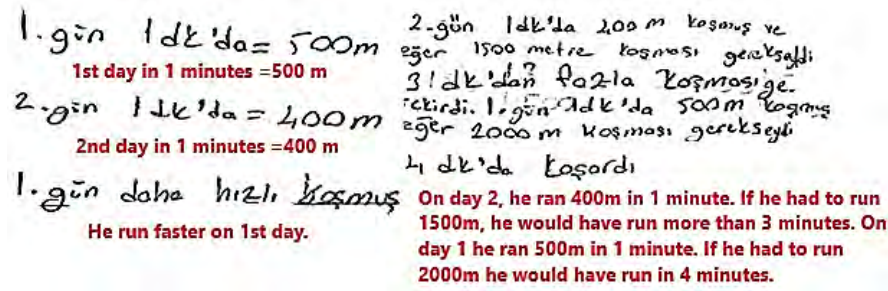 1. gün 1dk'da = 500m
1st day in 1 minutes =500 m
2. gün 1dk'da = 400m
2nd day in 1 minutes =400 m
1. gün daha hızlı koşmuş
He run faster on 1st day.
2. gün 1dk'da 400 m koşmuş ve
eğer 1500 metre koşması gerekseydi
3! dk'dan fazla koşması ge.
rekirdi. 1. gün 1dk'da 500m koşmuş
eğer 2000 m koşması gerekseydi
4 dk'da koşardı
On day 2, he ran 400m in 1 minute. If he had to run
1500m, he would have run more than 3 minutes. On
day 1 he ran 500m in 1 minute. If he had to run
2000m he would have run in 4 minutes.